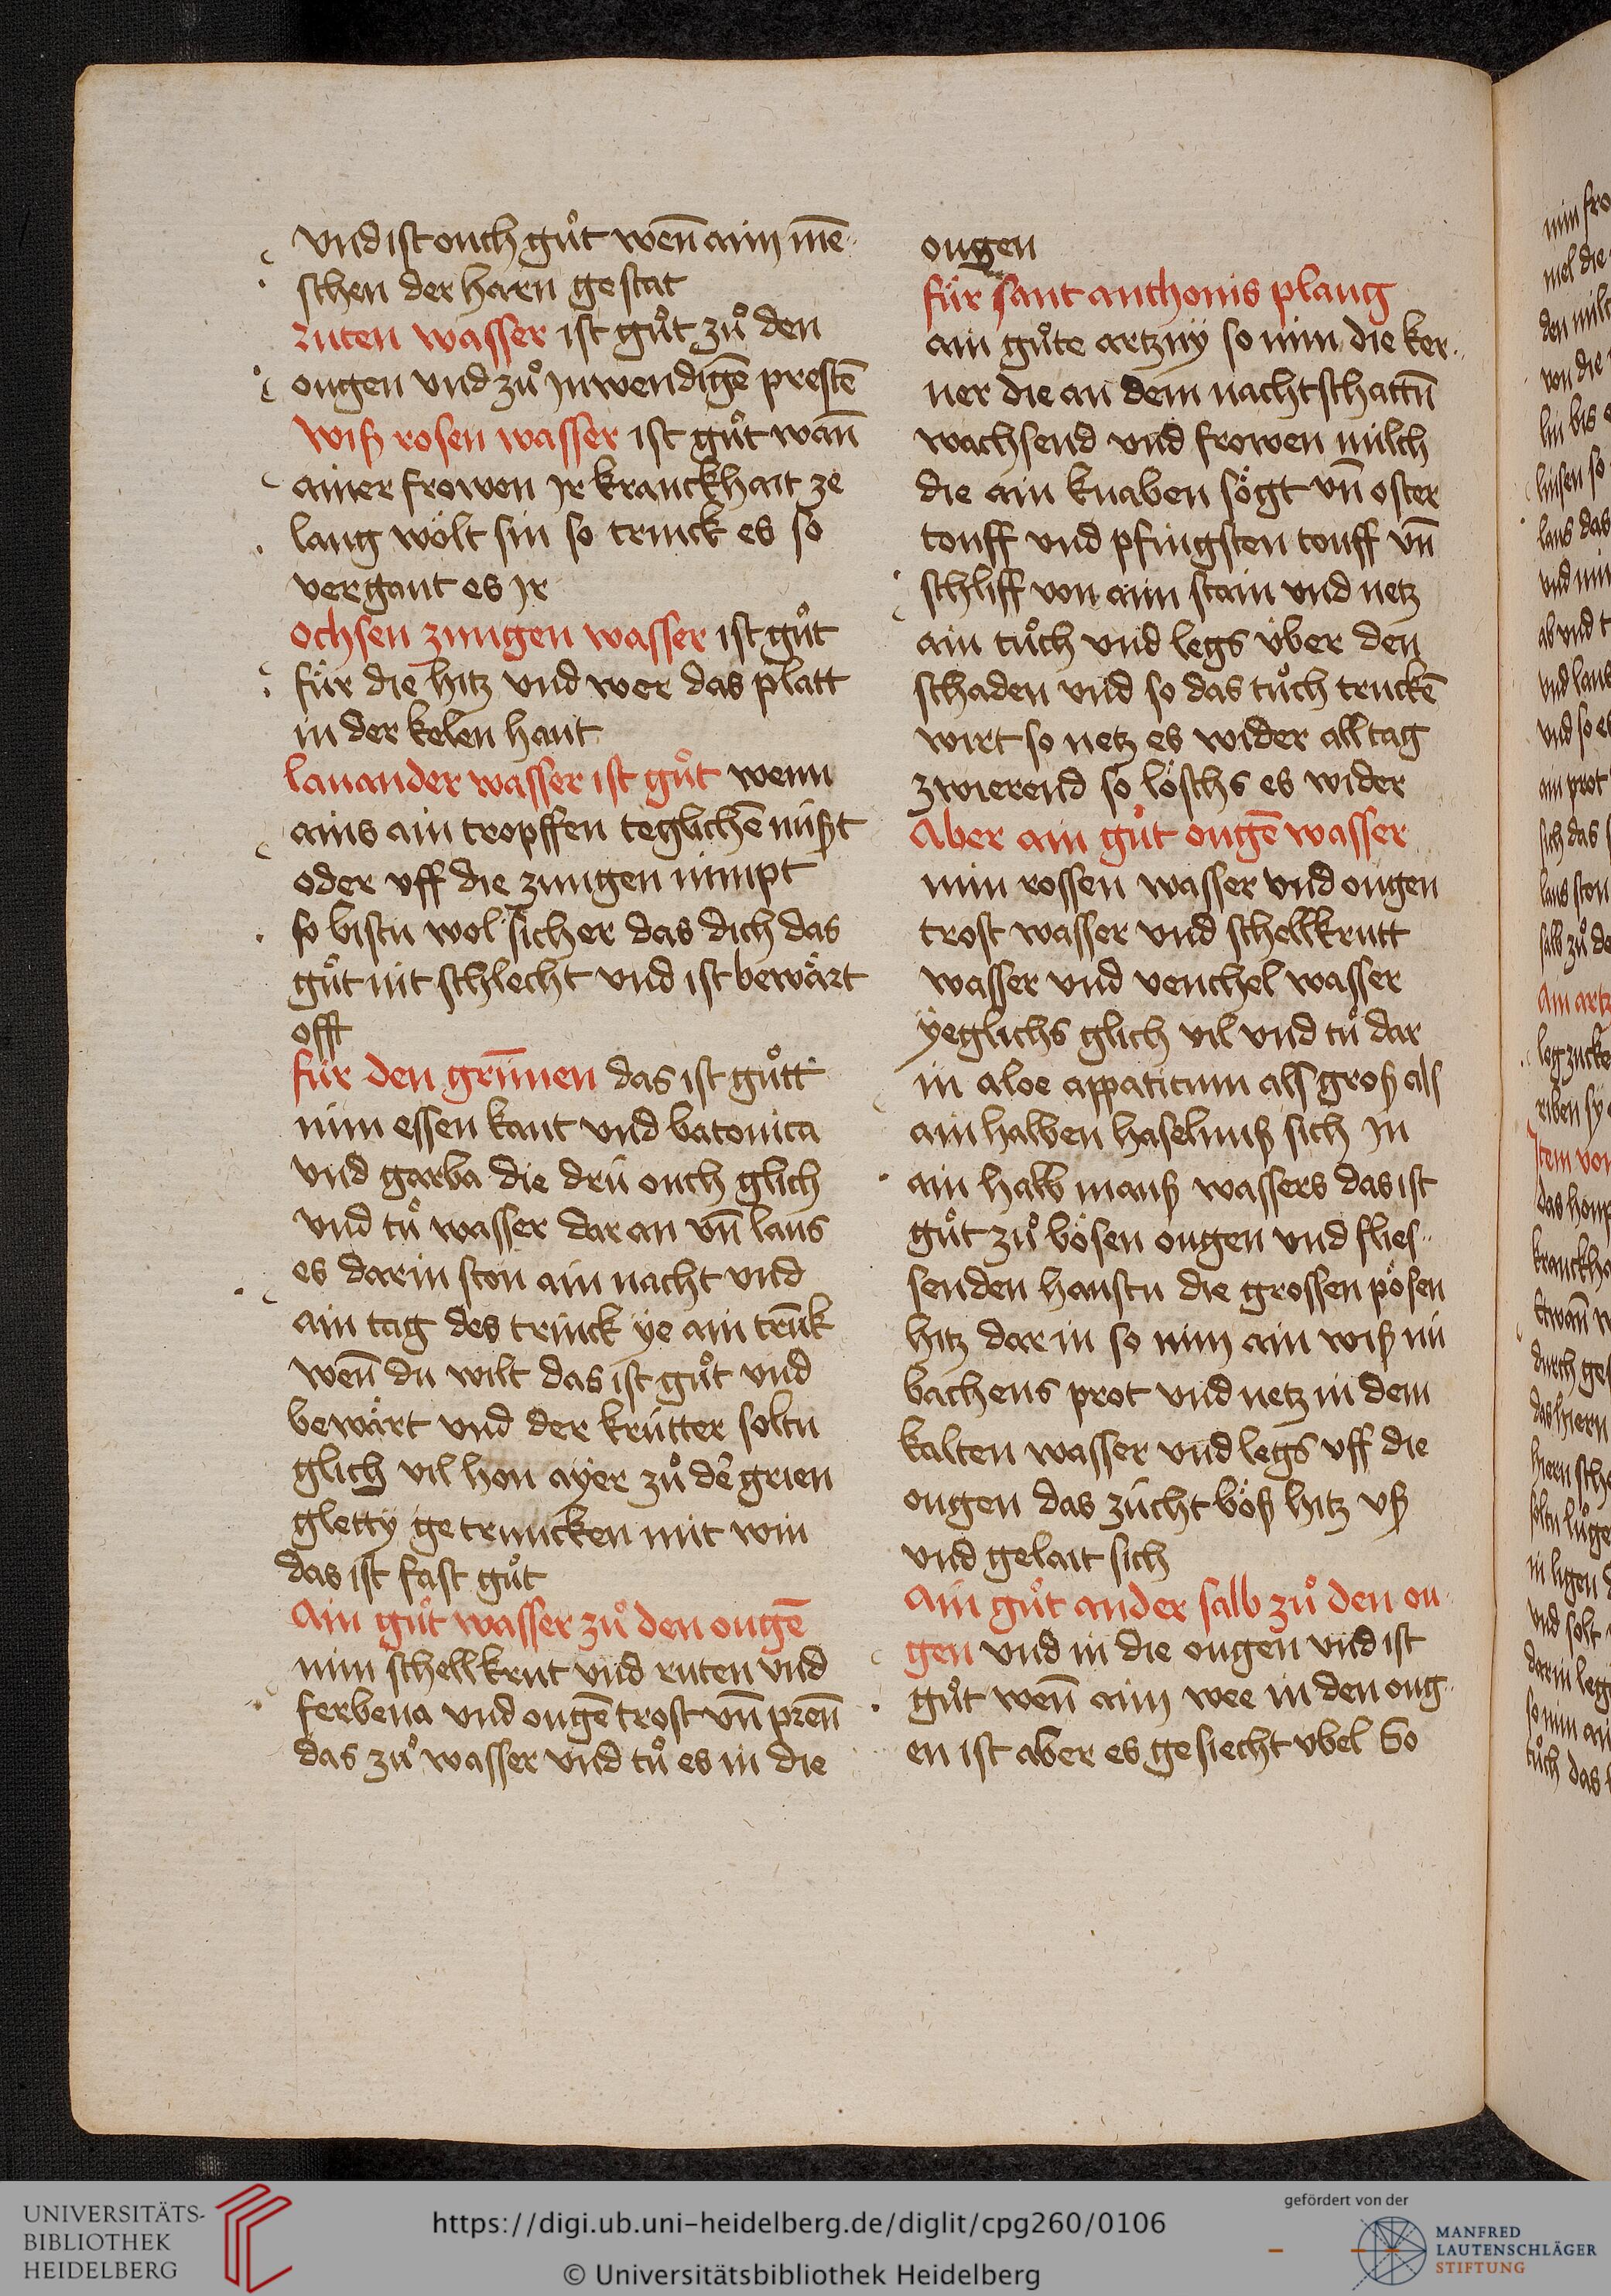 vnd ist ouch gůt wen̄ aim mē-
schen der harn gestat
ruten wasser ist gůt zů den
ougen vnd zů Inwendigē prestē
wiß rosen wasser ist gůt wan̄
ainer frowen Ir kranckhait ze
lang wölt sin so trinck es so
vergant es Ir
ochsen zungen wasser ist gůt
für die hitz vnd wer das platt
in der kelen haut
lauander wasser ist gůt wenn
ains ain tropffen teglichē nüßt
oder vff die zungen nimpt
so bistu wol sicher das dich das
gůt nit schlecht vnd ist bewärt
offt
für den grim̄en das ist gůtt
nim essen kant vnd batonica
vnd garba die drü ouch glich
vnd tů wasser dar an vn̄ laus
es darin ston ain nacht vnd
ain tag des trinck ye ain tru̅k
wen̄ du wilt das ist gůt vnd
bewärt vnd der krütter soltu
glich vil hon ayer zů de̅ grien
gletty getruncken mit win
das ist fast gůt
Ain gůt wasser zů den ouge̅
nim schellkrut vnd ruten vnd
ferbena vnd ouge̅ trost vn̅ pren̅
das zů wasser vnd tů es in die
ougen
für sant anthonis plaug
ain gůte artzny so nim die ker-
ner die an dem nachtschattn̅
wachsend vnd frowen milch
die ain knaben sögt vn̅ oster
touff vnd pfingsten touff vn̅
schliff von aim stain vnd netz
ain tůch vnd legs über den
schaden vnd so das tůch trucke̅
wirt so netz es wider all tag
zwierend so löschs es wider
Aber ain gůt ouge̅ wasser
nim rossen wasser vnd ougen
trost wasser vnd schellkrutt
wasser vnd venchel wasser
yeglichs glich vil vnd tů dar
in aloe appaticum als groß als
ain halben haselnuß sich In
ain halb mauß wassers das ist
gůt zů bösen ougen vnd flies-
senden haustu die grossen pösen
hitz dar in so nim ain wiß nü
bachens prot vnd netz in dem
kalten wasser vnd legs vff die
ougen das zücht böß hitz vß
vnd gelait sich
Ain gůt ander salb zů den ou-
gen vnd in die ougen vnd ist
gůt wen̅ aim wee in den oug-
en ist aber es gesiecht vbel So
UNIVERSITÄTS-
BIBLIOTHEK
HEIDELBERG
https://digi.ub.uni-heidelberg.de/diglit/cpg260/0106
© Universitätsbibliothek Heidelberg
gefördert von der
MANFRED
LAUTENSCHLÄGER
STIFTUNG